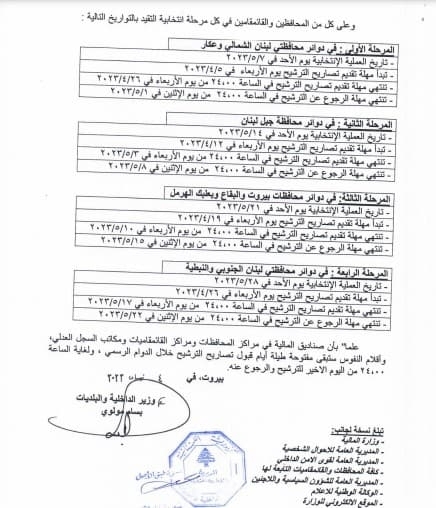 وعلى كل من المحافظين والقائمقامين في كل مرحلة انتخابية التقيد بالتواريخ التالية :
المرحلة الأولى: في دوائر محافظتي لبنان الشمالي وعكار
- تاريخ العملية الإنتخابية يوم الأحد في ٢٠٢٣/٥/٧
- تبدأ مهلة تقديم تصاريح الترشيح يوم الأربعاء في ٢٠٢٣/٤/٥
- تنتهي مهلة تقديم تصاريح الترشيح في الساعة ٢٤،٠٠ من يوم الأربعاء في ٢٠٢٣/٤/٢٦
- تنتهي مهلة الرجوع عن الترشيح في الساعة ٢٤،٠٠ من يوم الإثنين في ٢٠٢٣/٥/١
المرحلة الثانية: في دوائر محافظة جبل لبنان
- تاريخ العملية الإنتخابية يوم الأحد في ٢٠٢٣/٥/١٤
- تبدأ مهلة تقديم تصاريح الترشيح يوم الأربعاء في ٢٠٢٣/٤/١٢
- تنتهي مهلة تقديم تصاريح الترشيح في الساعة ٢٤،٠٠ من يوم الأربعاء في ٢٠٢٣/٥/٣
- تنتهي مهلة الرجوع عن الترشيح في الساعة ٢٤،٠٠ من يوم الإثنين في ٢٠٢٣/٥/٨
المرحلة الثالثة: في دوائر محافظات بيروت والبقاع وبعلبك الهرمل
- تاريخ العملية الإنتخابية يوم الأحد في ٢٠٢٣/٥/٢١
- تبدأ مهلة تقديم تصاريح الترشيح يوم الأربعاء في ٢٠٢٣/٤/١٩
- تنتهي مهلة تقديم تصاريح الترشيح في الساعة ٢٤،٠٠ من يوم الأربعاء في ٢٠٢٣/٥/١٠
- تنتهي مهلة الرجوع عن الترشيح في الساعة ٢٤،٠٠ من يوم الإثنين في ٢٠٢٣/٥/١٥
المرحلة الرابعة: في دوائر محافظتي لبنان الجنوبي والنبطية
- تاريخ العملية الإنتخابية يوم الأحد في ٢٠٢٣/٥/٢٨
- تبدأ مهلة تقديم تصاريح الترشيح يوم الأربعاء في ٢٠٢٣/٤/٢٦
- تنتهي مهلة تقديم تصاريح الترشيح في الساعة ٢٤،٠٠ من يوم الأربعاء في ٢٠٢٣/٥/١٧
- تنتهي مهلة الرجوع عن الترشيح في الساعة ٢٤،٠٠ من يوم الإثنين في ٢٠٢٣/٥/٢٢
علما" بأن صناديق المالية في مراكز المحافظات ومراكز القائمقاميات ومكاتب السجل العدلي،
وأقلام النفوس ستبقى مفتوحة طيلة أيام قبول تصاريح الترشيح خلال الدوام الرسمي ، ولغاية الساعة
٢٤،٠٠ من اليوم الاخير للترشيح والرجوع عنه.
بيروت، في ٤
وزير الداخلية والبلديات
بسام مولوي
تبلغ نسخة لجانب:
- وزارة المالية
- المديرية العامة للأحوال الشخصية
- المديرية العامة لقوى الامن الداخلي
- كافة المحافظات والقائمقاميات التابعة لها
- المديرية العامة للشؤون السياسية واللاجئين
- الوكالة الوطنية للاعلام
- الموقع الالكتروني للوزارة